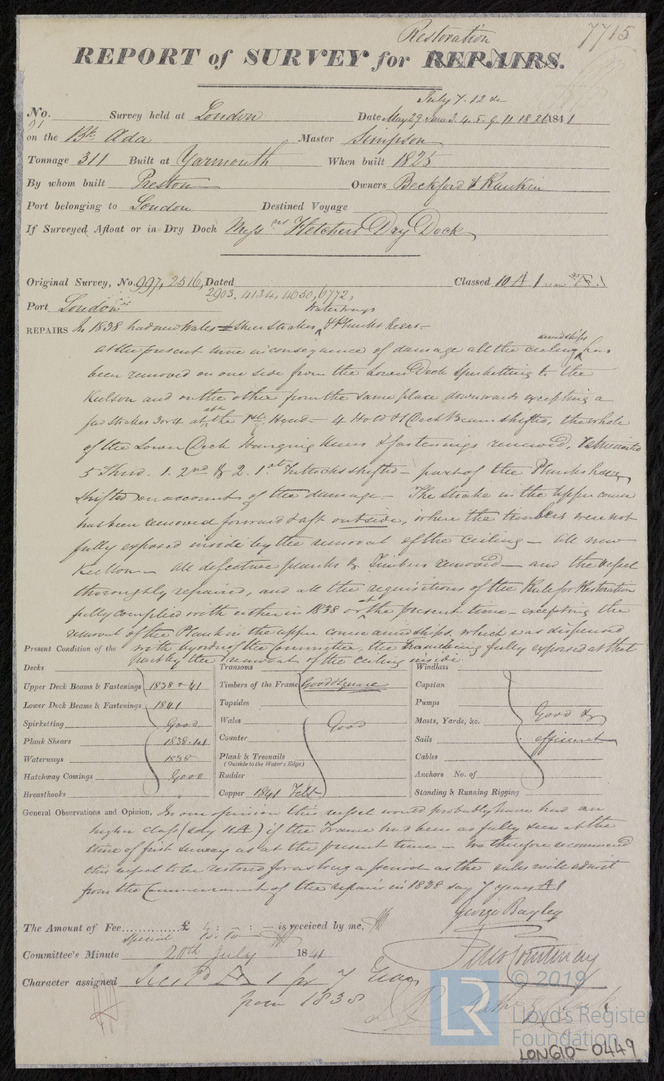 Restoration
7715
REPORT of SURVEY for REPAIRS.
July 7. 12 &
No. Survey held at London Date May 29 June 3. 4. 8. 9. 11. 18. 26 1841
on the Bk Ada Master Simpson
Tonnage 311 Built at Yarmouth When built 1825
By whom built Preston Owners Beckford & Rankin
Port belonging to London Destined Voyage
If Surveyed Afloat or in Dry Dock Messrs Fletchers Dry Dock
Original Survey, No. 997, 2516, Dated Classed 10 A 1
2903, 4134, 4650, 6772,
Port London
Waterways
REPAIRS In 1838 had new Wales Sheer Strakes & Planksheers
at the present time in consequence of damage all the ceiling amidships has
been removed on one side from the Lower Deck Spirketting to the
Keelson and on the other from the same place downwards excepting a
few strakes 3 or 4 at the 1st Head – 4 Hold & 1 Deck Beam shifted, the whole
of the Lower Deck Hanging Knees & fastenings renewed,
5 Third. 1. 2nd & 2. 1st Futtocks shifted – part of the Planksheer
shifted on account of the damage – The strake in the upper course
has been removed forward & aft outside, where the timbers were not
fully exposed inside by the removal of the ceiling – all new
Keelson – all defective planks & Timbers removed – and the vessel
thoroughly repaired, and all the requisitions of the Rule for Restoration
fully complied with either in 1838 or at the present time – excepting the
removal of the Plank in the upper course amidships, which was dispensed
with by order of the Committee, the timbers being fully exposed at that
part by the removal of the ceiling inside
Present Condition of the
Decks
Upper Deck Beams & Fastenings 1838 & 41
Lower Deck Beams & Fastenings 1841
Spirketting Good
Plank Shears 1838.41
Waterways 1838
Hatchway Comings Good
Breasthooks
Transoms
Timbers of the Frame Good & Square
Topsides
Wales Good
Counter
Plank & Treenails
(Outside to the Water's Edge)
Rudder
Copper 1841 Felt
Windlass
Capstan
Pumps
Masts, Yards, &c. Good &
Sails efficient
Cables
Anchors No. of
Standing & Running Rigging
General Observations and Opinion, In our opinion this vessel would probably have had an
higher class (say 11 A) if the Frame had been as fully seen at the
time of first survey as at the present time – We therefore recommend
this vessel to be restored for as long a period as the rules will admit
from the Commencement of the repairs in 1838 say 7 years A 1
George Bayley
The Amount of Fee £ 4 : – : – is received by me,
Special
Committee's Minute 20th July 1841
Character assigned A 1 for 7 Years
from 1838
LR
© 2019
Lloyd's Register
Foundation
LON610-0449